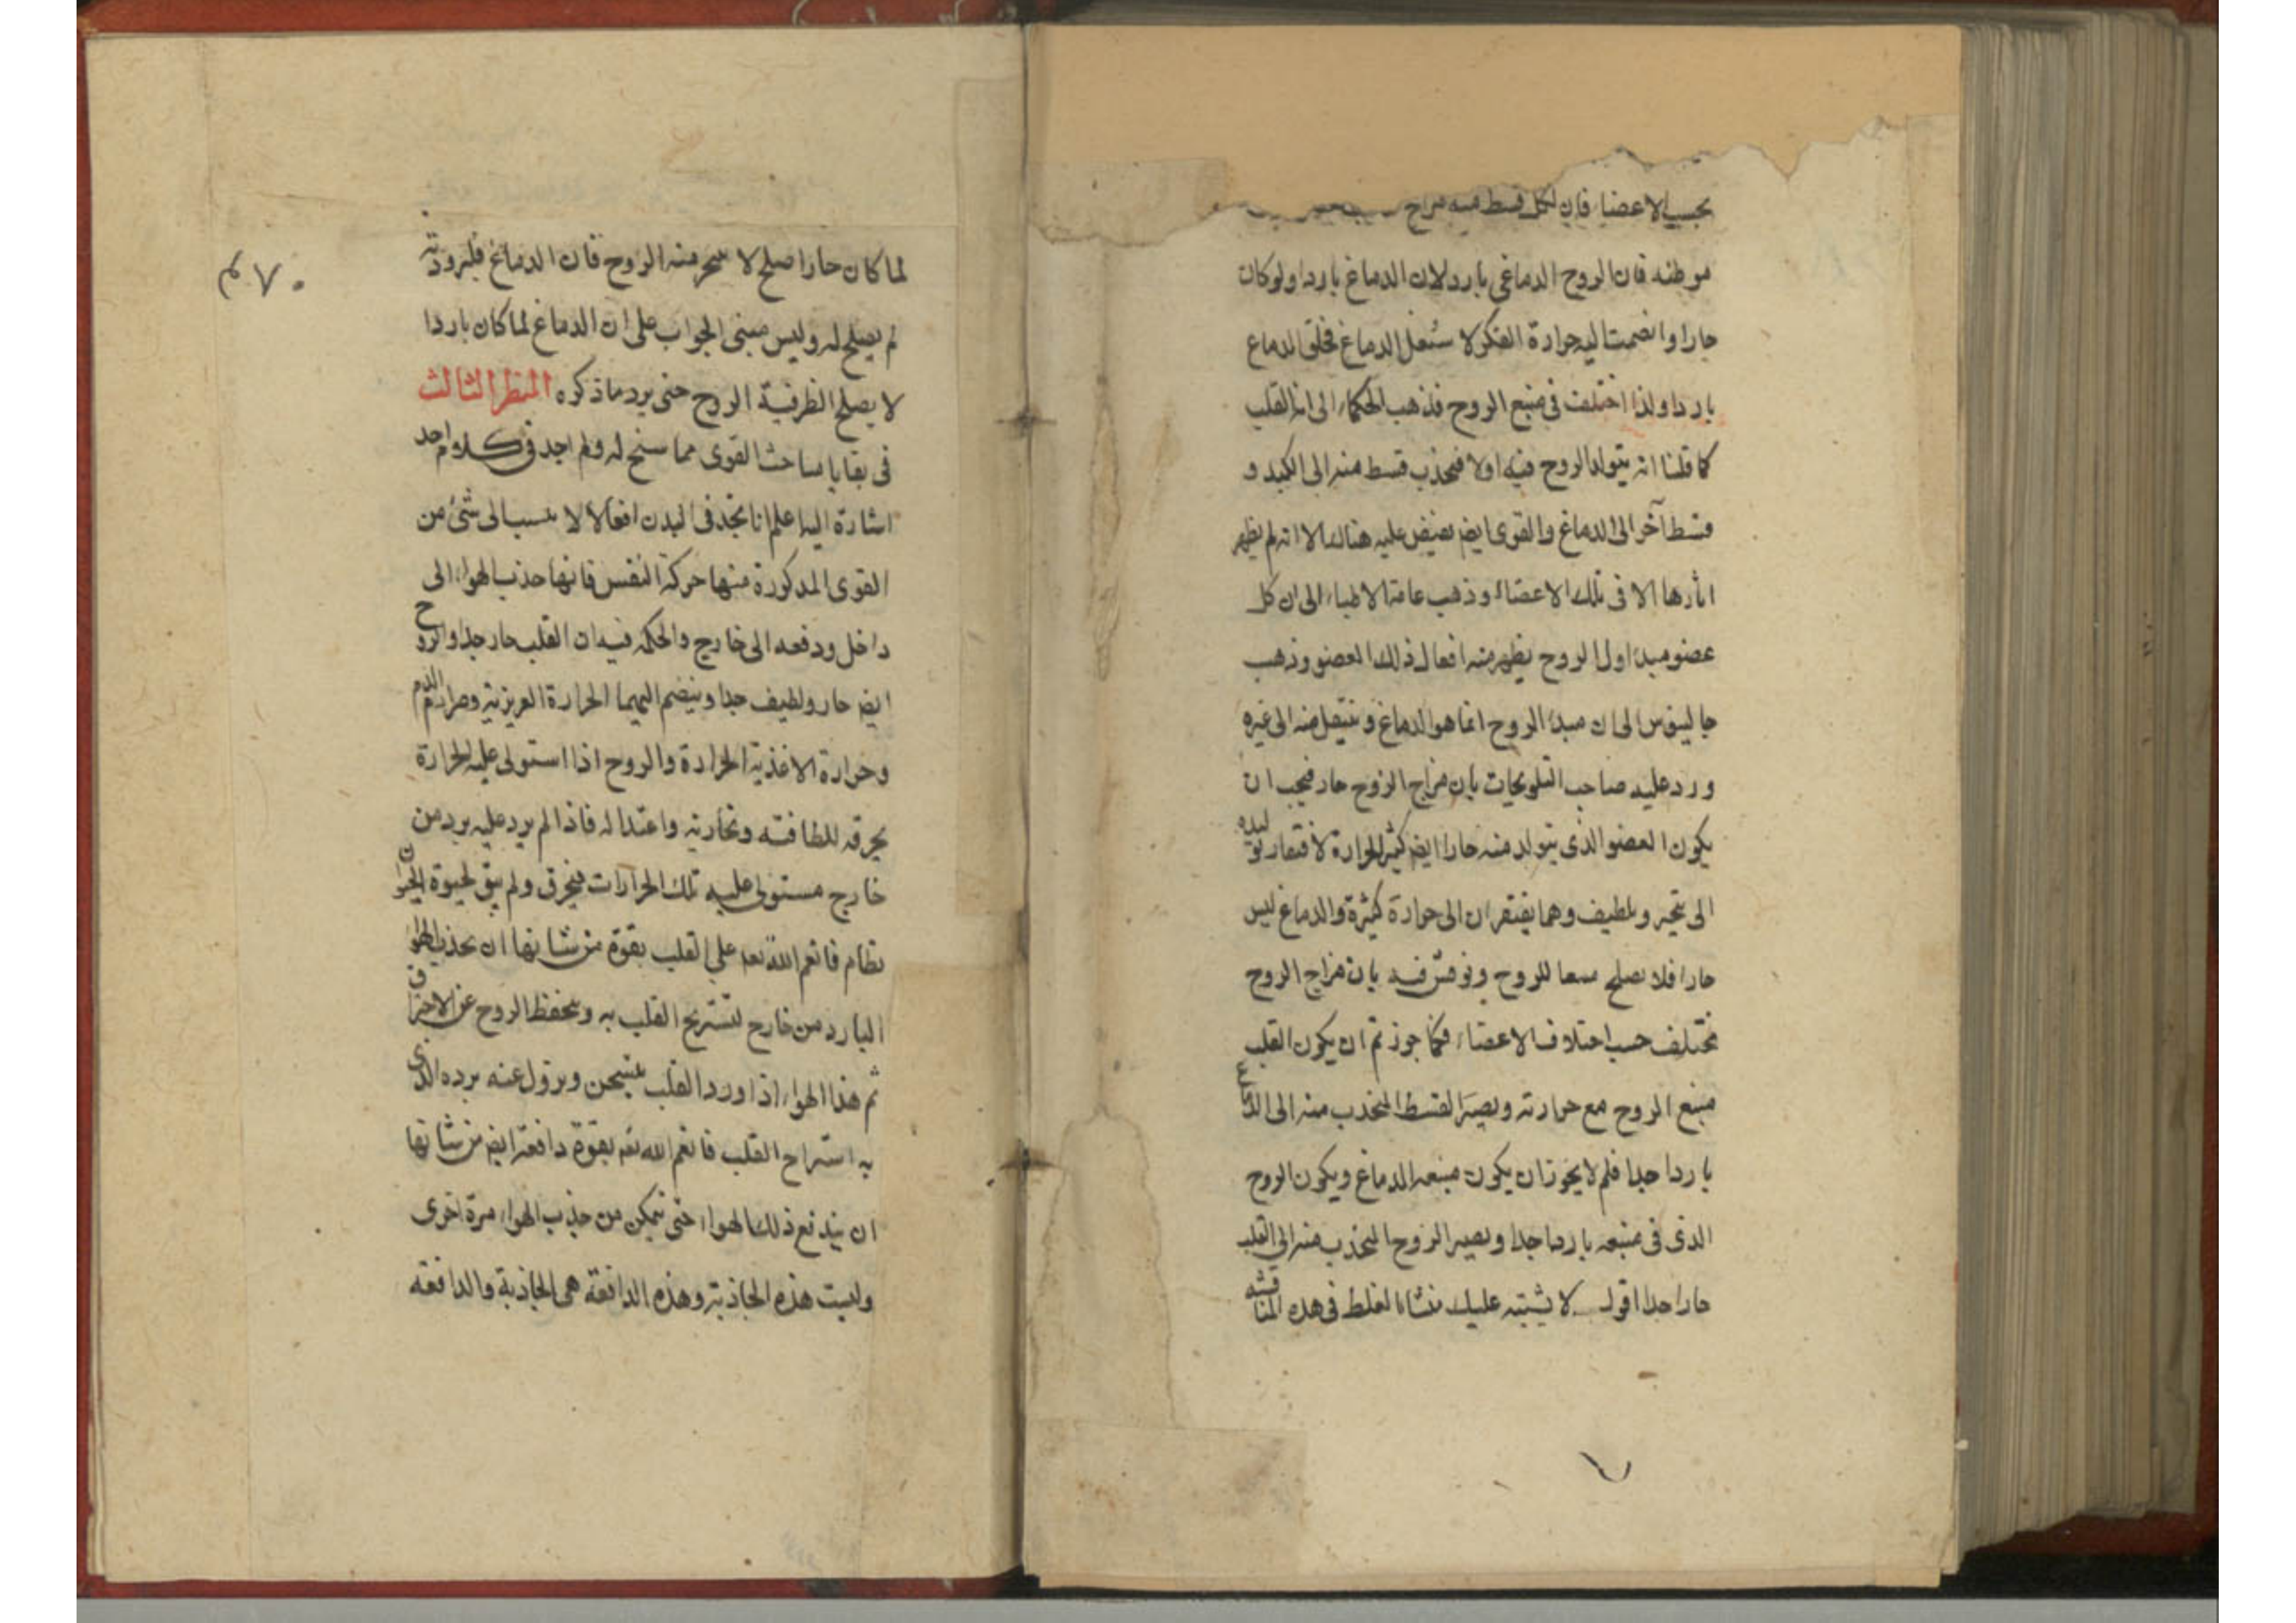 بحسب الاعضاء فان لكل قسط منه مزاج
موطنه فان الروح الدماغى بارد لان الدماغ باردا ولو كان
حارا وانضمت اليه حرارة الفكر لاشتعل الدماغ فخلق الدماغ
باردا ولذا اختلف فى منبع الروح فذهب الحكماء الى انه القلب
كما قلنا انه يتولد الروح فيه اولا فيجذب قسط منه الى الكبد و
قسط آخر الى الدماغ والقوى ايضا يفيض عليه هناك الا انه لم يظهر
اثارها الا فى تلك الاعضاء وذهب عامة الاطباء الى ان كل
عضو مبدء اول الروح يظهر منه افعال ذلك العضو وذهب
جالينوس الى ان مبدء الروح انما هو الدماغ وينتقل منه الى غيره
ورد عليه صاحب التلويحات بان مزاج الروح حار فيجب ان
يكون العضو الذى يتولد منه حارا ايضا كثير الحرارة لافتقار توليده
الى تبخير وتلطيف وهما يفتقران الى حرارة كثيرة والدماغ ليس
حارا فلا يصلح منبعا للروح ونوقش فيه بان مزاج الروح
مختلف حسب اختلاف الاعضاء فكما جوزتم ان يكون القلب
منبع الروح مع حرارته ويصير القسط المنجذب منه الى الدماغ
باردا جدا فلم لا يجوز ان يكون منبعه الدماغ ويكون الروح
الذى فى منبعه باردا جدا ويصير الروح المنجذب منه الى القلب
حارا جدا اقول لا يشتبه عليك منشاء الغلط فى هذه المناقشة
٧٠ م
لما كان حارا صلح لا منه الروح فان الدماغ فلبرودته
لم يصلح له وليس مبنى الجواب على ان الدماغ لما كان باردا
لا يصلح لظرفية الروح حتى يرد ما ذكره المنظر الثالث
فى بقايا مباحث القوى مما سنح له ولم اجد فى كلام احد
اشارة اليه اعلم انا نجد فى البدن افعالا لا ينسب الى شئ من
القوى المذكورة منها حركة النفس فانها جذب الهواء الى
داخل ودفعه الى خارج والحكمة فيه ان القلب حار جدا والروح
ايضا حار ولطيف جدا وينضم اليهما الحرارة الغريزية وحرارة الدم
وحرارة الاغذية الحارة والروح اذا استولى عليه الحرارة
يحرقه للطافته وبخاريته واعتداله فاذا لم يرد عليه برد من
خارج مستولى عليه تلك الحرارات فيحرق ولم يبق لحيوة الحيوان
نظام فانعم الله تعه على القلب بقوة من شانها ان يجذب الهواء
البارد من خارج لتستريح القلب به ويحفظ الروح عن الاحتراق
ثم هذا الهواء اذا ورد القلب يتسخن ويزول عنه برده الذى
به استراح القلب فانعم الله تعه بقوة دافعة ايضا من شانها
ان يندفع ذلك الهواء حتى يتمكن من جذب الهواء مرة اخرى
وليست هذه الجاذبة وهذه الدافعة هى الجاذبة والدافعة